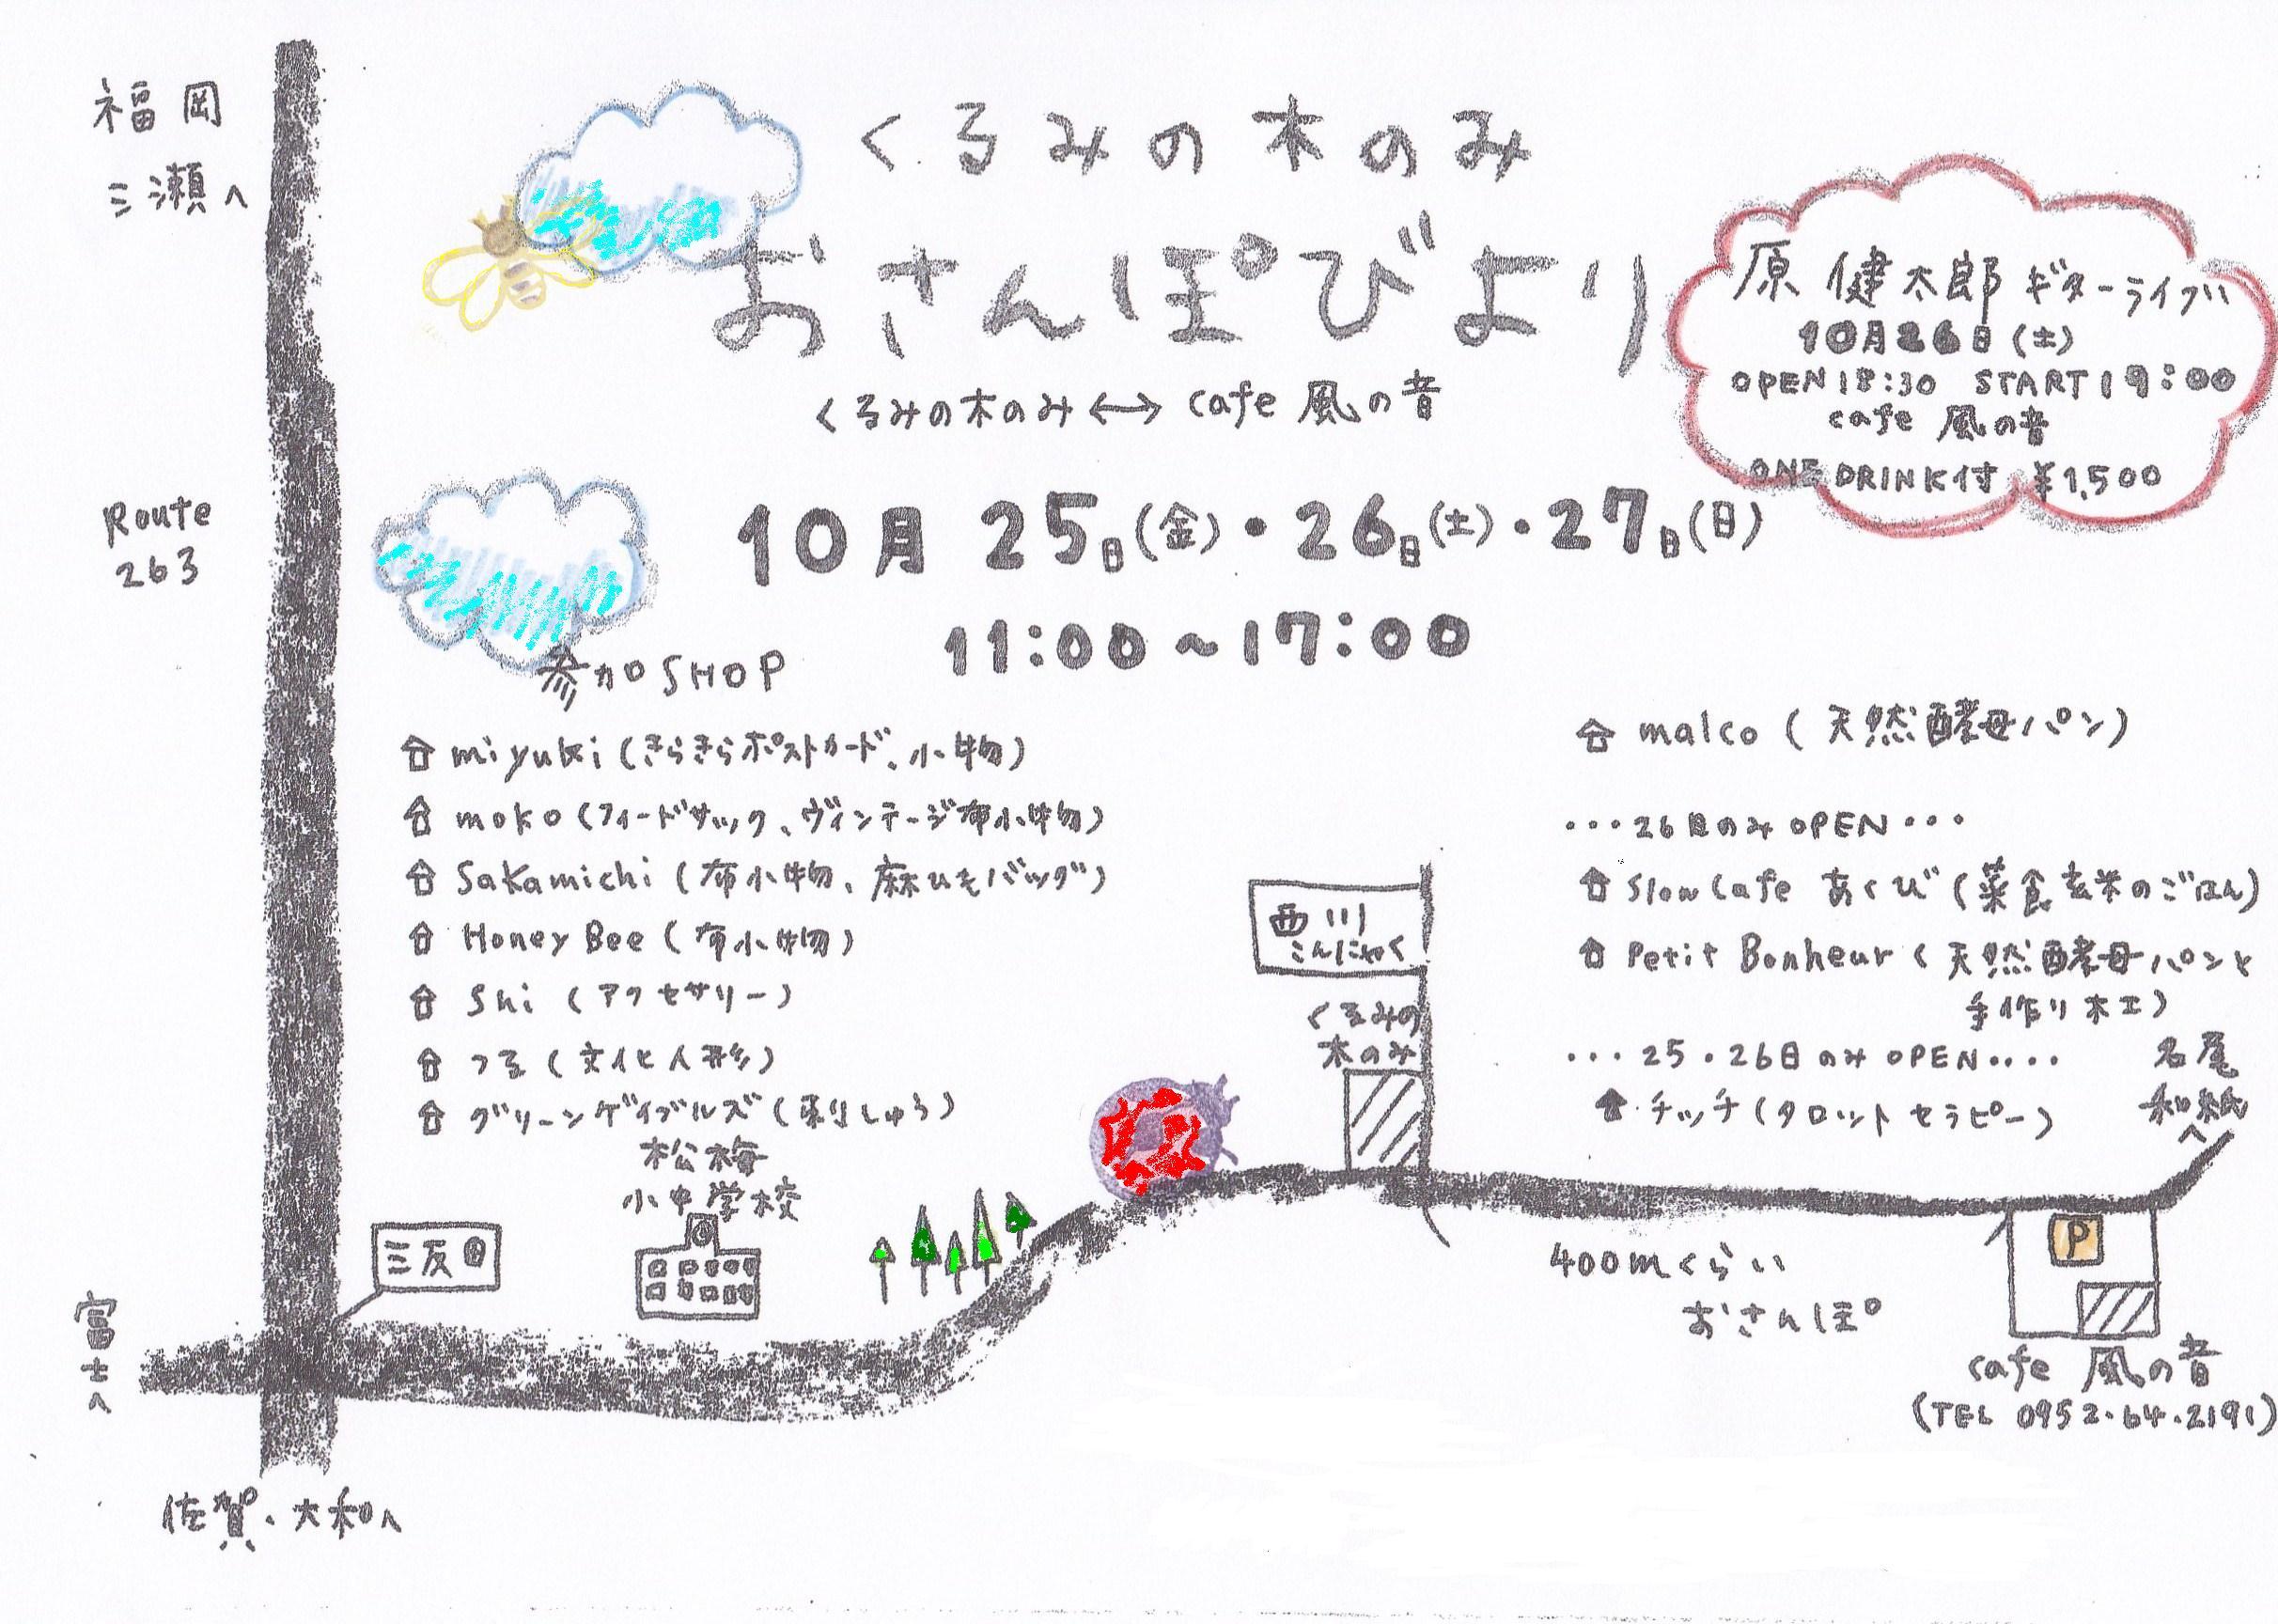 福岡
三瀬へ
くるみの木のみ
おさんぽびより
くるみの木のみ↔cafe 風の音
原 健太郎 ギターライブ
10月26日(土)
OPEN18:30 START19:00
cafe 風の音
ONE DRINK付 ¥1,500
Route
263
10月 25日(金)・26日(土)・27日(日)
11:00～17:00
参加SHOP
miyuki(きらきらポストカード、小物)
moko(フィードサック、ヴィンテージ布小物)
Sakamichi(布小物、麻ひもバッグ)
Honey Bee(布小物)
Shi(アクセサリー)
つる(文化人形)
グリーンゲイブルズ(刺しゅう)
malco(天然酵母パン)
・・・26日のみOPEN・・・
Slow Cafe あくび(菜食玄米のごはん)
Petit Bonheur(天然酵母パンと
手作り木工)
・・・25・26日のみOPEN・・・・
チッチ(タロットセラピー)
名尾
和紙
へ
西川
こんにゃく
くるみの
木のみ
松梅
小中学校
三反田
400mくらい
おさんぽ
P
cafe 風の音
(TEL 0952・64・2191)
富士へ
佐賀、大和へ